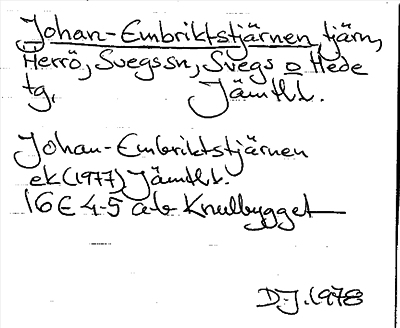 Johan-Embriktstjärnen, tjärn,
Herrö, Svegssn, Svegs o Hede
tg, Jämtl l.
Johan-Embriktstjärnen
ek (1977) Jämtl l.
16E 4-5 ab Knulbygget
D-J. 1978